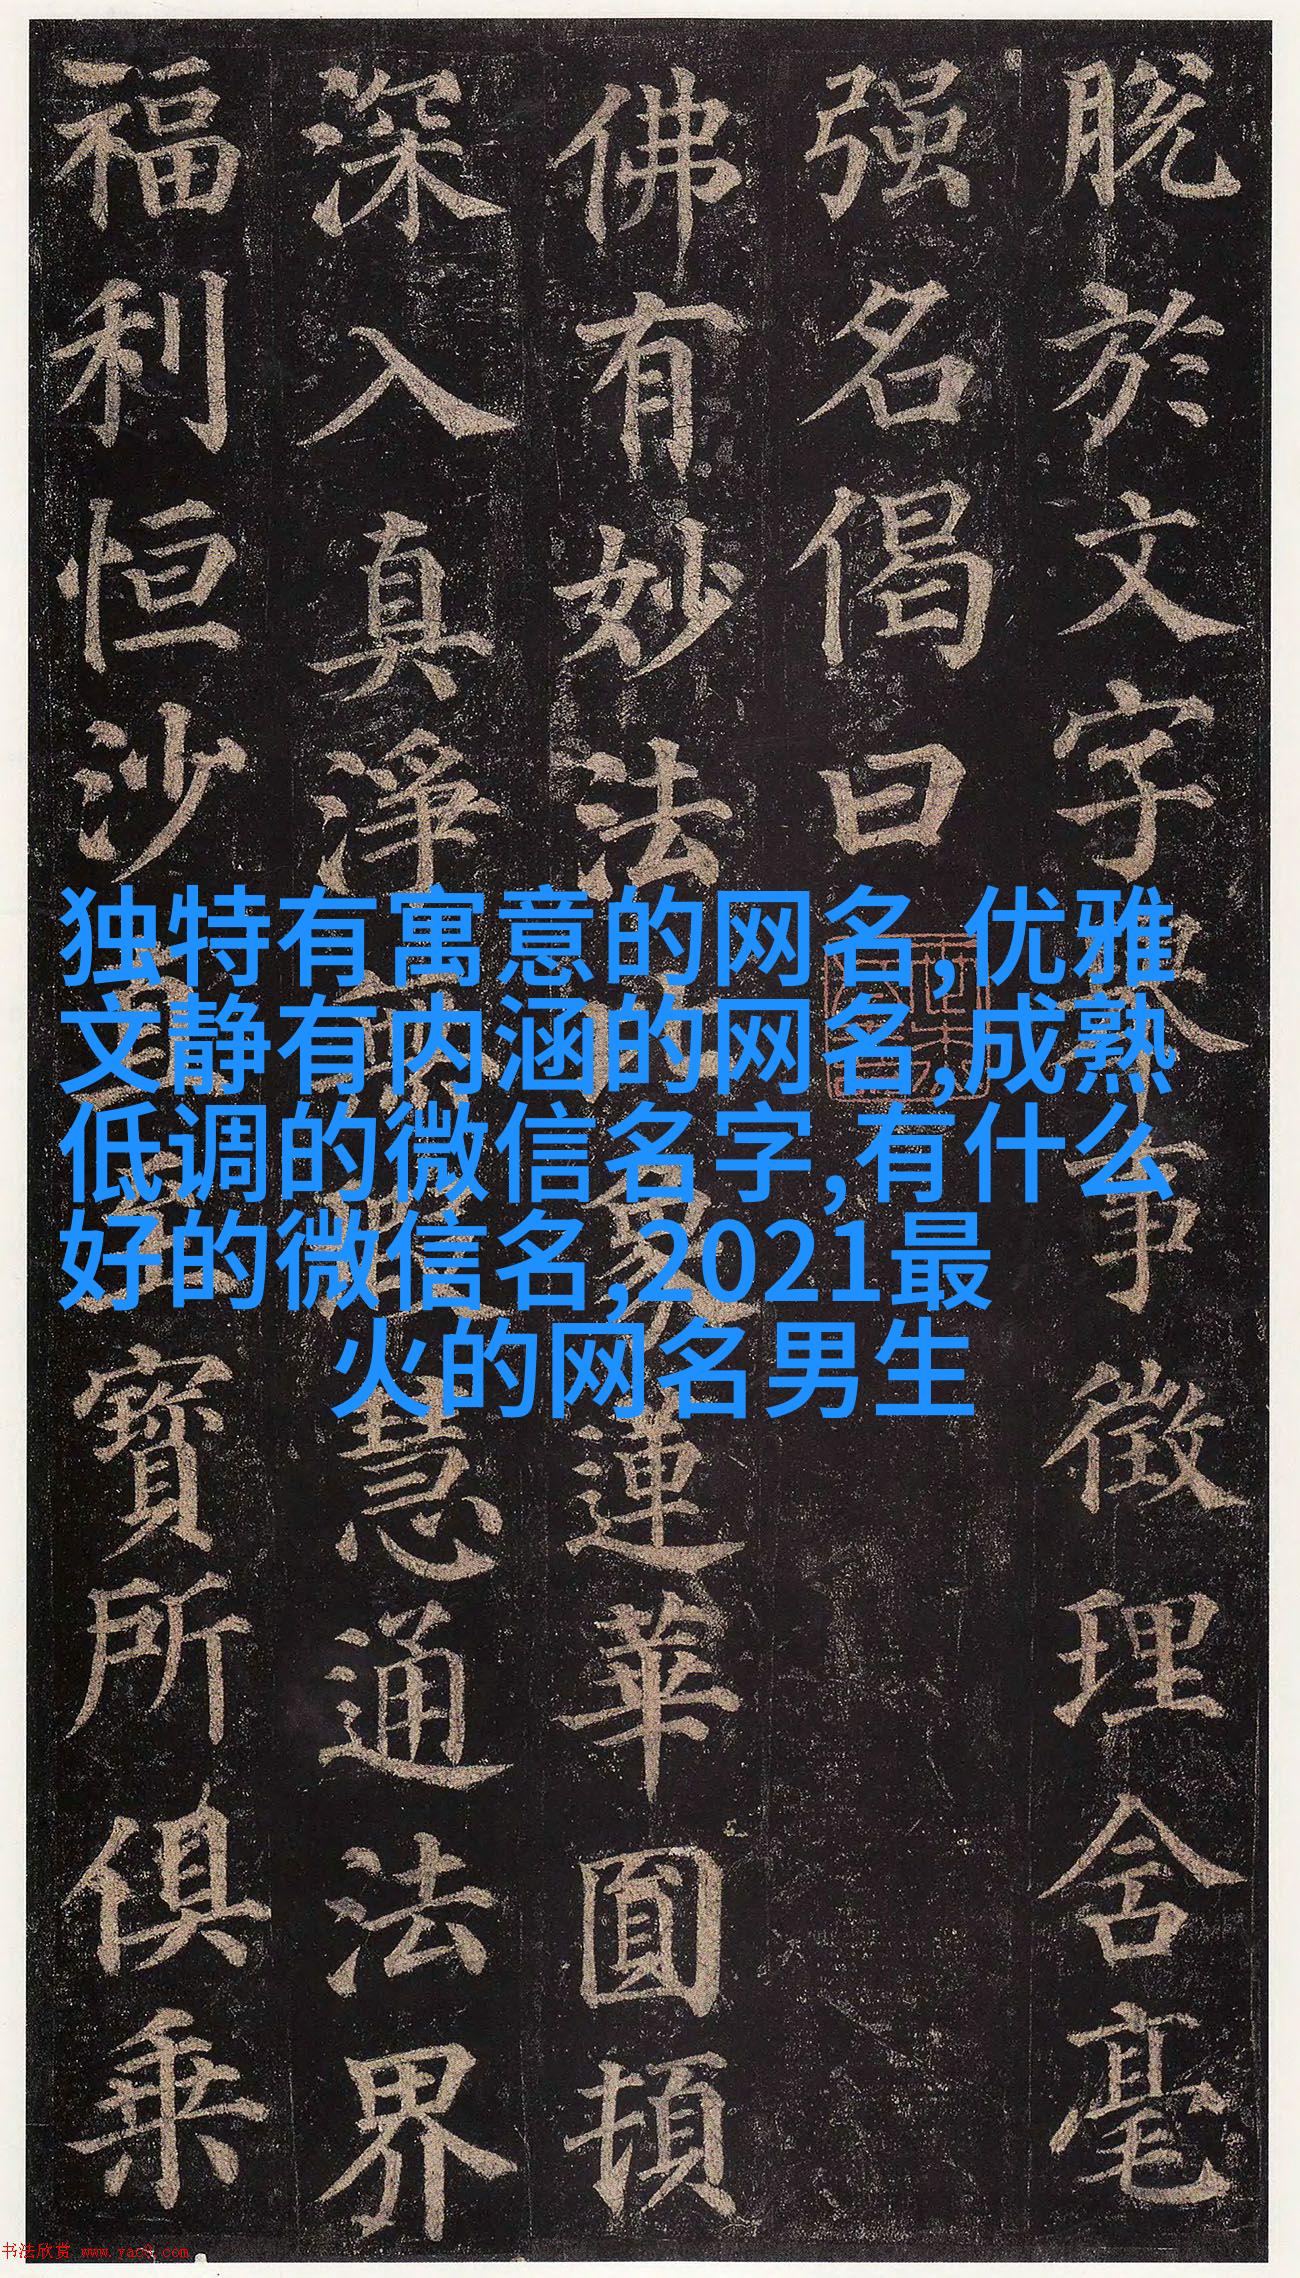 脱於文字舉事徵理含毫
强名偈曰
佛有妙法比象蓮華圓頓
深入真淨無瑕慧通法界
福利恒沙直至寶所俱乘
独特有寓意的网名,优雅
文静有内涵的网名,成熟
低调的微信名字,有什么
好的微信名,2021最
火的网名男生
书法欣赏 www.yac8.com